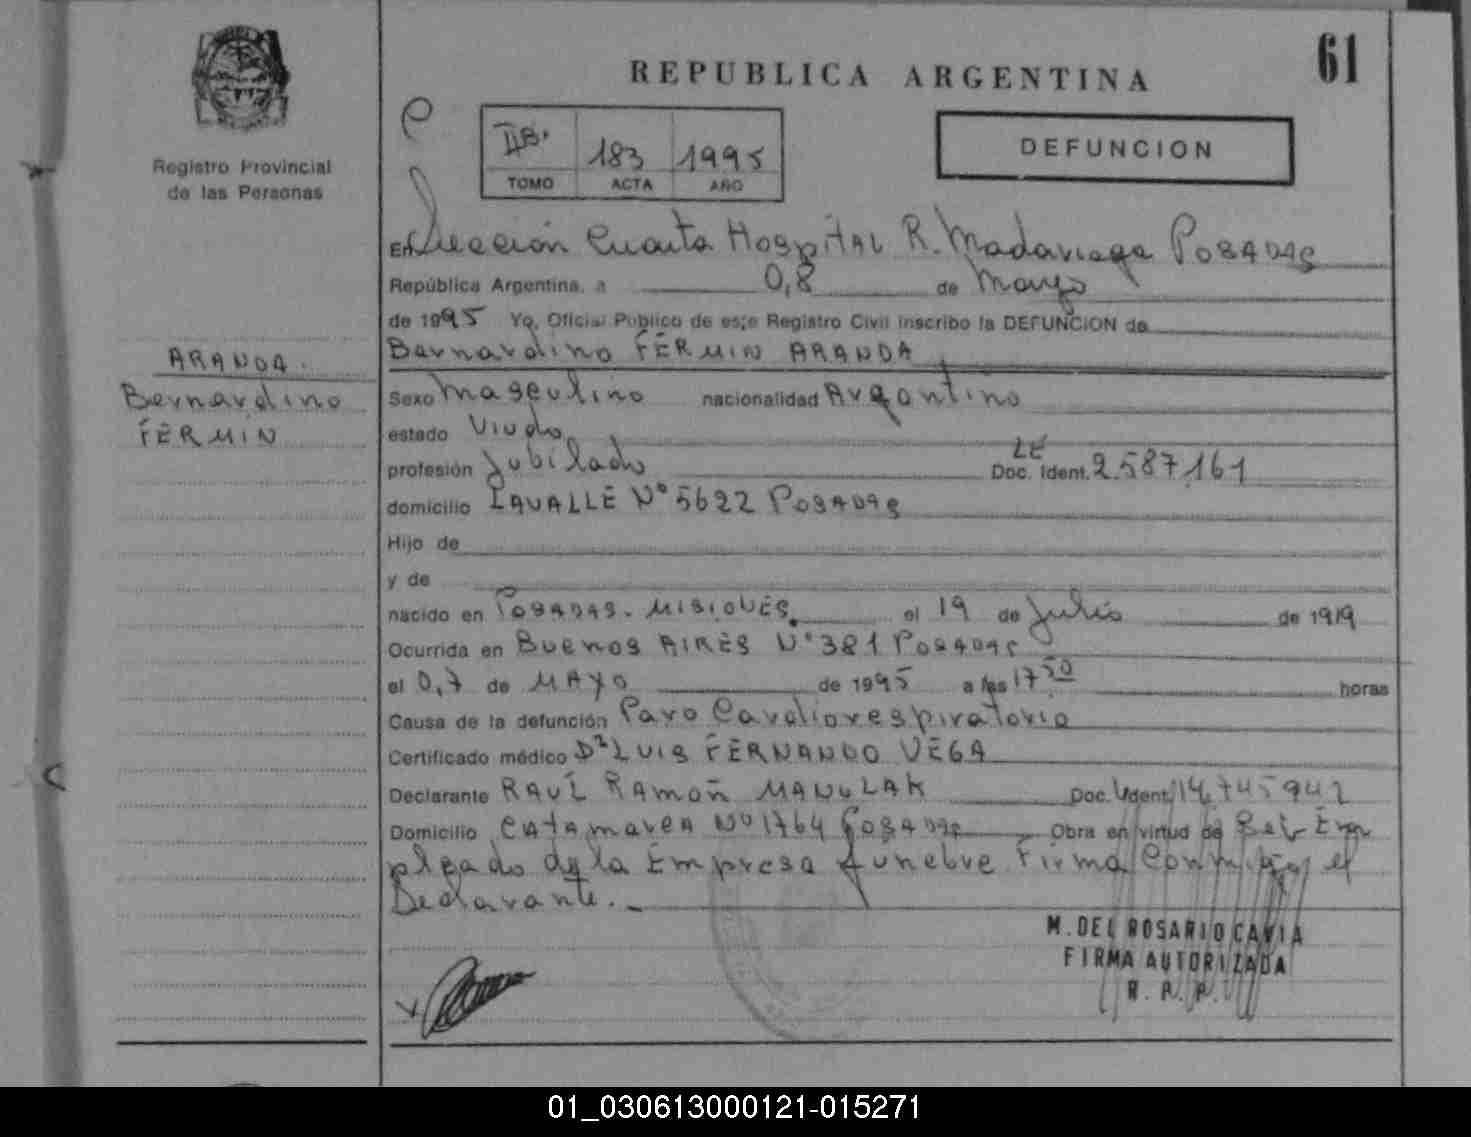 61
REPUBLICA ARGENTINA
Registro Provincial
de las Personas
IIB. 183 1995
TOMO ACTA AÑO
DEFUNCION
En Sección Cuarta Hospital R. Madariaga Posadas
República Argentina, a 0,8 de Mayo
de 1995 Yo, Oficial Publico de este Registro Civil inscribo la DEFUNCION de
Bernardino FERMIN ARANDA
ARANDA.
Bernardino
FERMIN
Sexo Masculino nacionalidad Argentino
estado Viudo
profesión Jubilado Doc. Ident. LE 2.587.161
domicilio LAVALLE Nº 5622 POSADAS
Hijo de
y de
nacido en POSADAS - MISIONES. el 19 de Julio de 1919
Ocurrida en BUENOS AIRES Nº 381 POSADAS
el 0,7 de MAYO de 1995 a las 17 50 horas
Causa de la defunción Paro Cardiorespiratorio
Certificado médico Dr LUIS FERNANDO VEGA
Declarante RAUL RAMON MANULAK Doc. Ident. 14.745.942
Domicilio CATAMARCA Nº 1764 POSADAS Obra en virtud de Ser Em
pleado de la Empresa funebre. Firma Conmigo el
Declarante.-
M. DEL ROSARIO CAVIA
FIRMA AUTORIZADA
R. P. P.
01_030613000121-015271